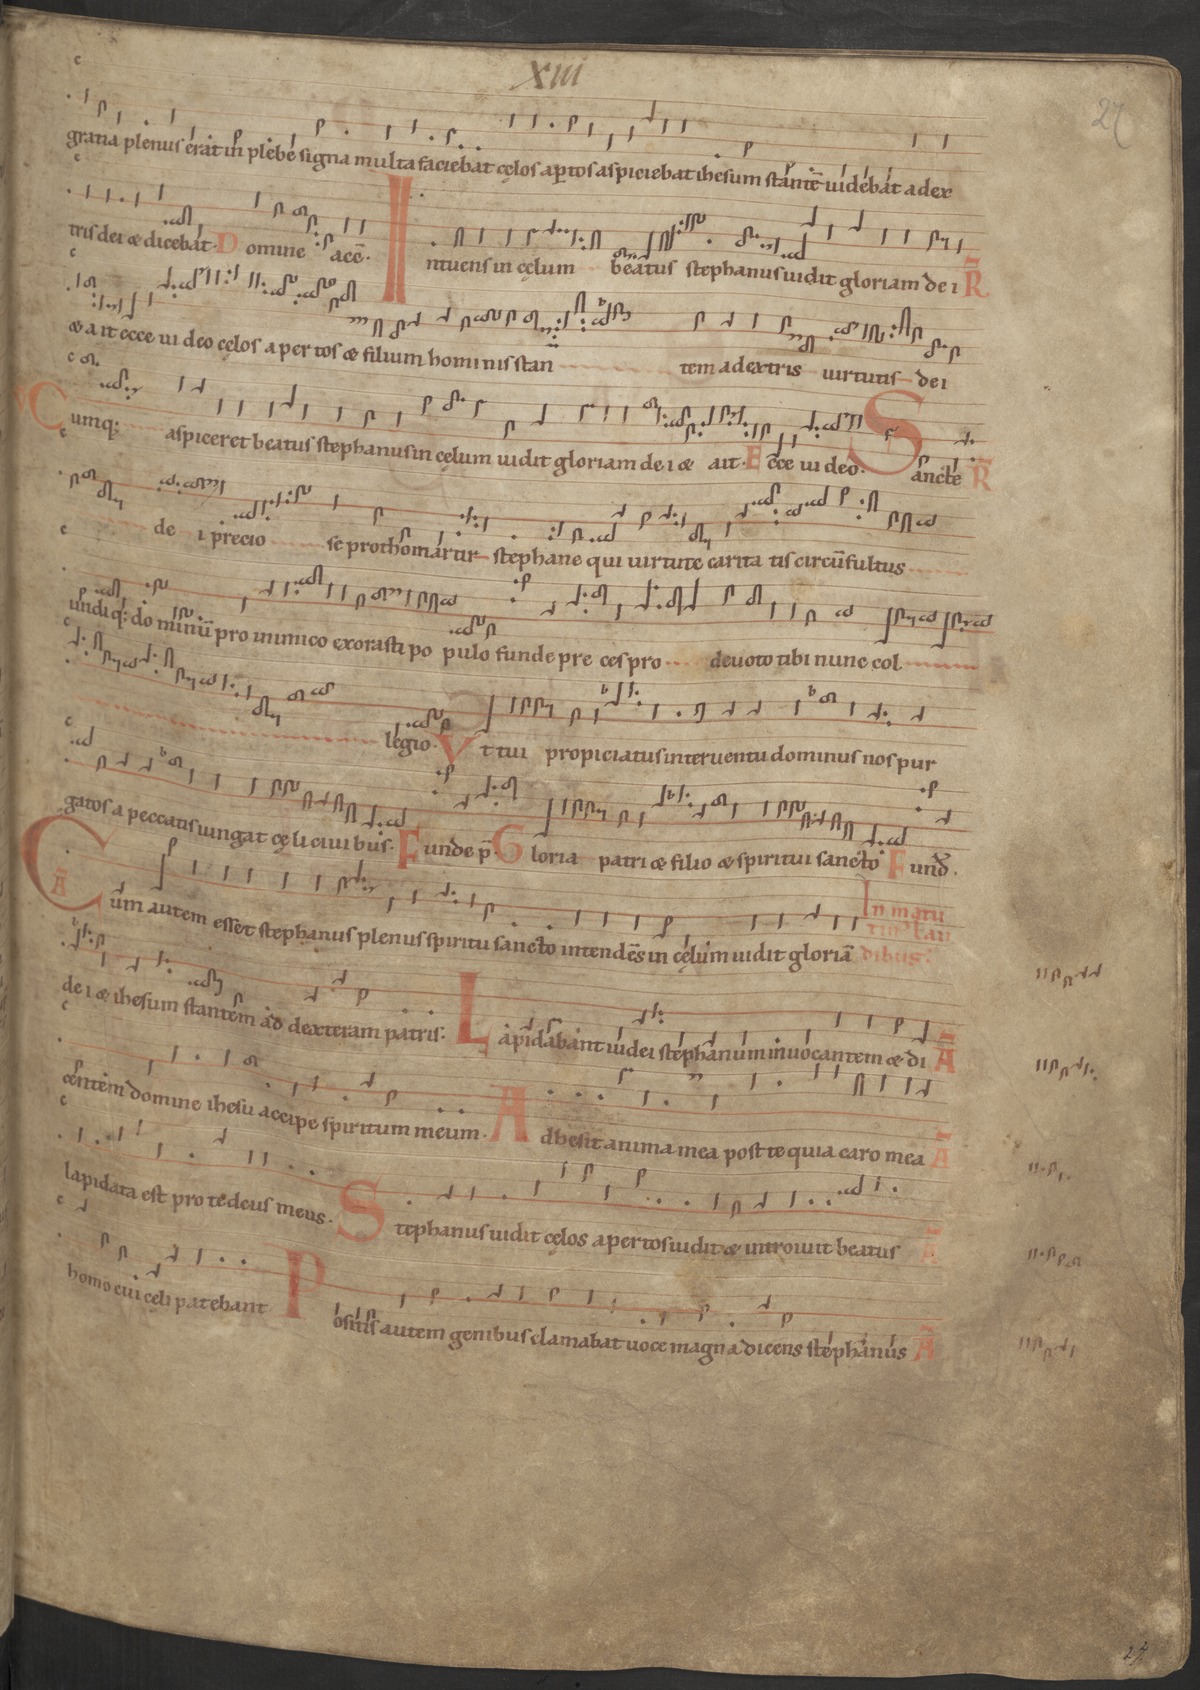 XIII
27
gratia plenus erat in plebe signa multa faciebat cęlos aptos aspiciebat ihesum stantē uidebat adex
tris dei & dicebat. Domine accē. Intuens in cęlum beatus stephanus uidit gloriam dei R̄
& ait ecce uideo cęlos apertos & filium hominis stan tem adextris uirtutis dei
V Cumq; aspiceret beatus stephanus in cęlum uidit gloriam dei & ait. Ecce uideo. Sancte R̄
dei precio se prothomartir stephane qui uirtute caritatis circūfultus
undiq; dominū pro inimico exorasti populo funde preces pro deuoto tibi nunc col
legio. Vt tui propiciatus interuentu dominus nos pur
gatos a peccatis iungat cęli ciuibus. Funde p̄. Gloria patri & filio & spiritui sancto Fund.
Ā Cum autem esset stephanus plenus spiritu sancto intendēs in cęlum uidit gloriā In matu
dibus.
dei & ihesum stantem ad dexteram patris. Lapidabant iudei stephanum inuocantem & di Ā
centem domine ihesu accipe spiritum meum. Adhesit anima mea post te quia caro mea Ā
lapidata est pro te deus meus. Stephanus uidit cęlos apertos uidit & introiuit beatus Ā
homo cui cęli patebant Positis autem genibus clamabat uoce magna dicens stephanus Ā
27